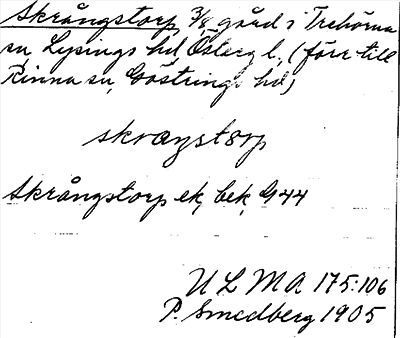 Skrångstorp 3/8 gård i Trehörna
sn, Lysings hd, Österg l., (förr till
Rinna sn, Göstrings hd)
skraŋstorp
Skrångstorp ek, bek, G 44
U L M A 175:106
P. Smedberg 1905